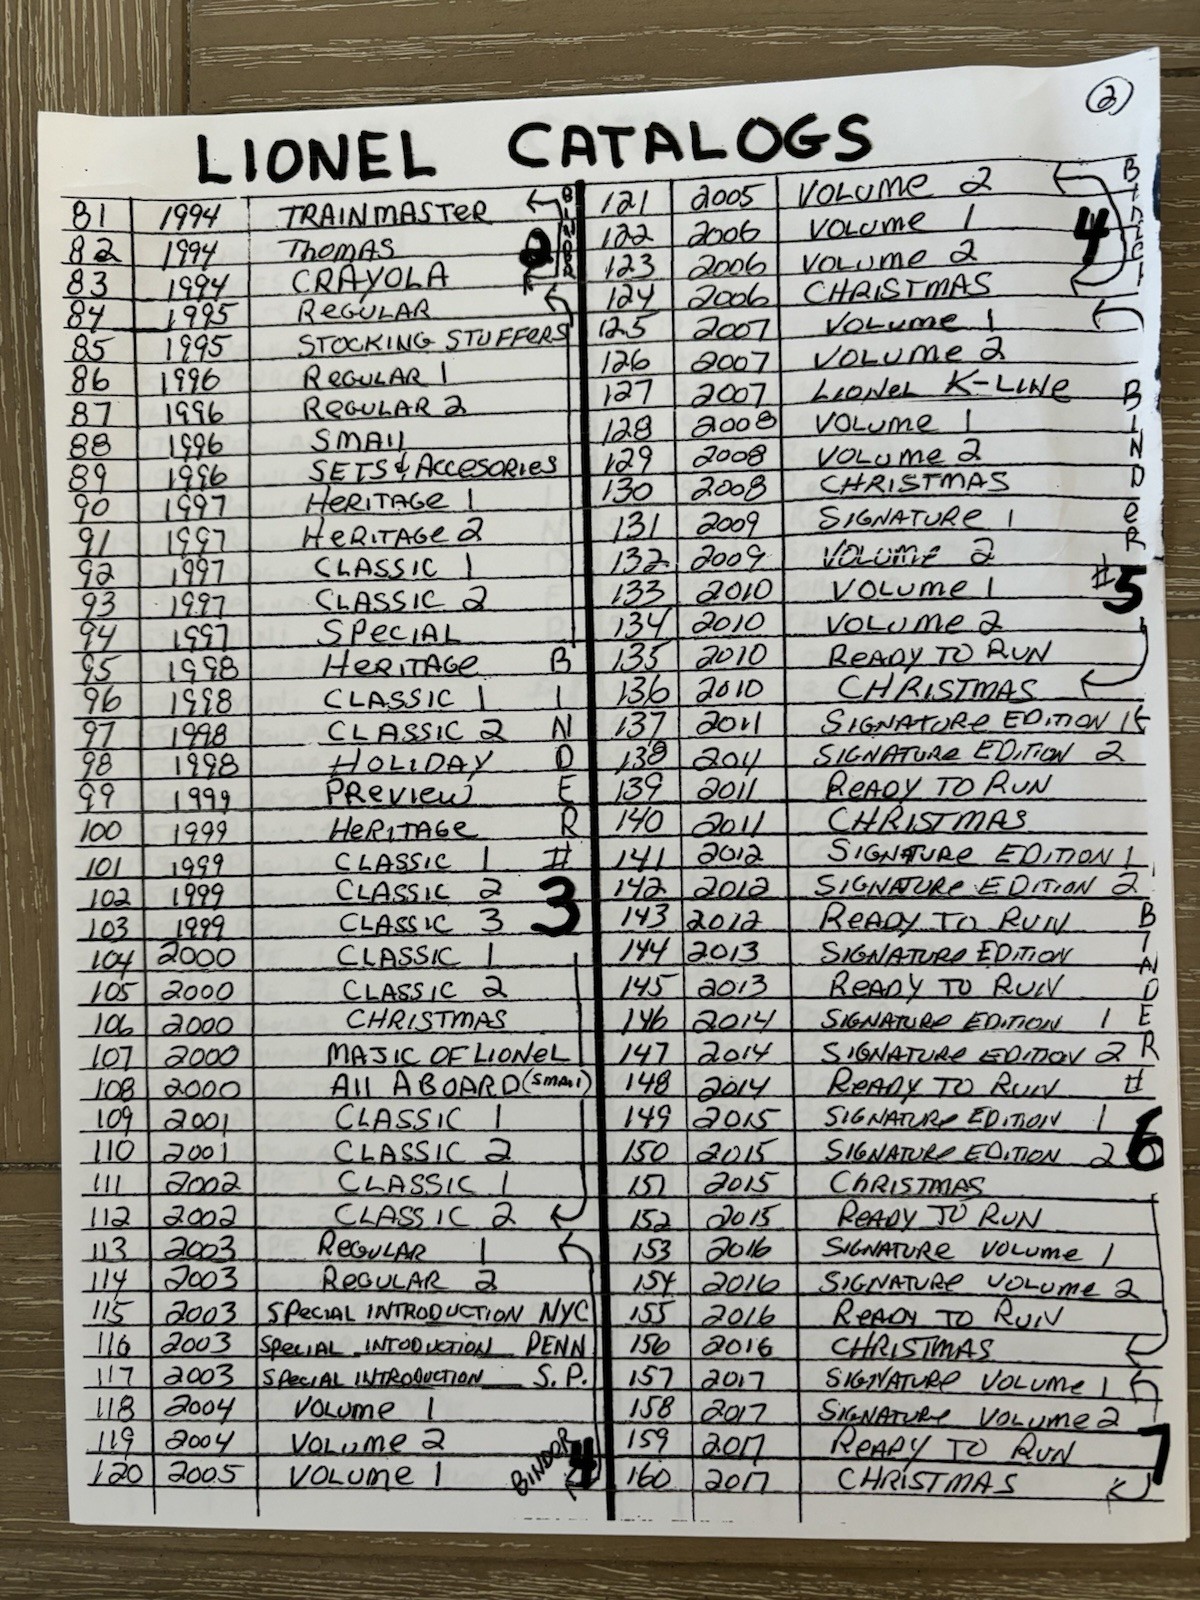 2
LIONEL CATALOGS
81 1994 TRAINMASTER
82 1994 THOMAS
83 1994 CRAYOLA
84 1995 REGULAR
85 1995 STOCKING STUFFERS
86 1996 REGULAR 1
87 1996 REGULAR 2
88 1996 SMAll
89 1996 SETS & ACCESORIES
90 1997 HERITAGE 1
91 1997 HERITAGE 2
92 1997 CLASSIC 1
93 1997 CLASSIC 2
94 1997 SPECIAL
95 1998 HERITAGE
96 1998 CLASSIC 1
97 1998 CLASSIC 2
98 1998 HOLIDAY
99 1999 PREVIEW
100 1999 HERITAGE
101 1999 CLASSIC 1
102 1999 CLASSIC 2
103 1999 CLASSIC 3
104 2000 CLASSIC 1
105 2000 CLASSIC 2
106 2000 CHRISTMAS
107 2000 MAJIC OF LIONEL
108 2000 All ABOARD (SMAll)
109 2001 CLASSIC 1
110 2001 CLASSIC 2
111 2002 CLASSIC 1
112 2002 CLASSIC 2
113 2003 REGULAR 1
114 2003 REGULAR 2
115 2003 SPECIAL INTRODUCTION NYC
116 2003 SPECIAL INTODUCTION PENN
117 2003 SPECIAL INTRODUCTION S.P.
118 2004 VOLUME 1
119 2004 VOLUME 2
120 2005 VOLUME 1
BINDER 2
BINDER # 3
BINDOR 4
121 2005 VOLUME 2
122 2006 VOLUME 1
123 2006 VOLUME 2
124 2006 CHRISTMAS
125 2007 VOLUME 1
126 2007 VOLUME 2
127 2007 LIONEL K-LINE
128 2008 VOLUME 1
129 2008 VOLUME 2
130 2008 CHRISTMAS
131 2009 SIGNATURE 1
132 2009 VOLUME 2
133 2010 VOLUME 1
134 2010 VOLUME 2
135 2010 READY TO RUN
136 2010 CHRISTMAS
137 2011 SIGNATURE EDITION 1
138 2011 SIGNATURE EDITION 2
139 2011 READY TO RUN
140 2011 CHRISTMAS
141 2012 SIGNATURE EDITION 1
142 2012 SIGNATURE EDITION 2
143 2012 READY TO RUN
144 2013 SIGNATURE EDITION
145 2013 READY TO RUN
146 2014 SIGNATURE EDITION 1
147 2014 SIGNATURE EDITION 2
148 2014 READY TO RUN
149 2015 SIGNATURE EDITION 1
150 2015 SIGNATURE EDITION 2
151 2015 CHRISTMAS
152 2015 READY TO RUN
153 2016 SIGNATURE VOLUME 1
154 2016 SIGNATURE VOLUME 2
155 2016 READY TO RUN
156 2016 CHRISTMAS
157 2017 SIGNATURE VOLUME 1
158 2017 SIGNATURE VOLUME 2
159 2017 READY TO RUN
160 2017 CHRISTMAS
4
BINDER #5
BINDER # 6
7